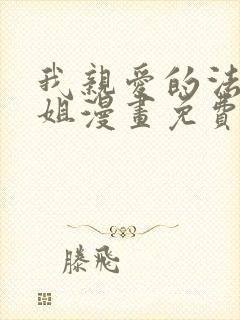 我親愛的法
姐漫畫免費
滕飛